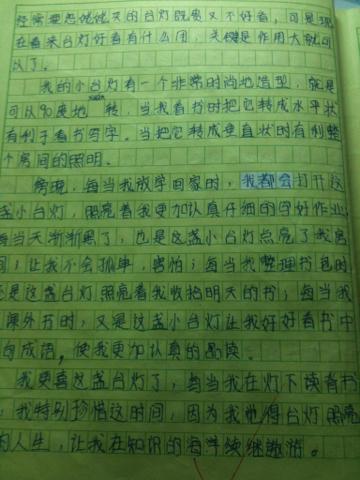 经常要恩姥姥买的台灯既贵又不好看，可是现
在看来台灯好看有什么用，关键是作用大就可
以了。
我的小台灯有一个非常时尚地造型，就是
可以90度地 转，当我看书时把它转成水平状
有利于看书写字。当把它转成垂直状时有利整
个房间的照明。
傍晚，每当我放学回家时，我都会打开这
盏小台灯，照亮着我更加认真仔细的学好作业；
每当天渐渐黑了，也是这盏小台灯点亮了我房
间；让我不会孤单，害怕；每当我整理书包时
还是这盏台灯照亮着我收拾明天的书；每当我
课外书时，又是这盏小台灯让我好好看书中
句成语，使我更加认真的品读。
我更喜这盏台灯了，每当我在灯下读着书
，我特别珍惜这时间，因为我觉得台灯照亮
的人生，让我在知识的海洋续继遨游。